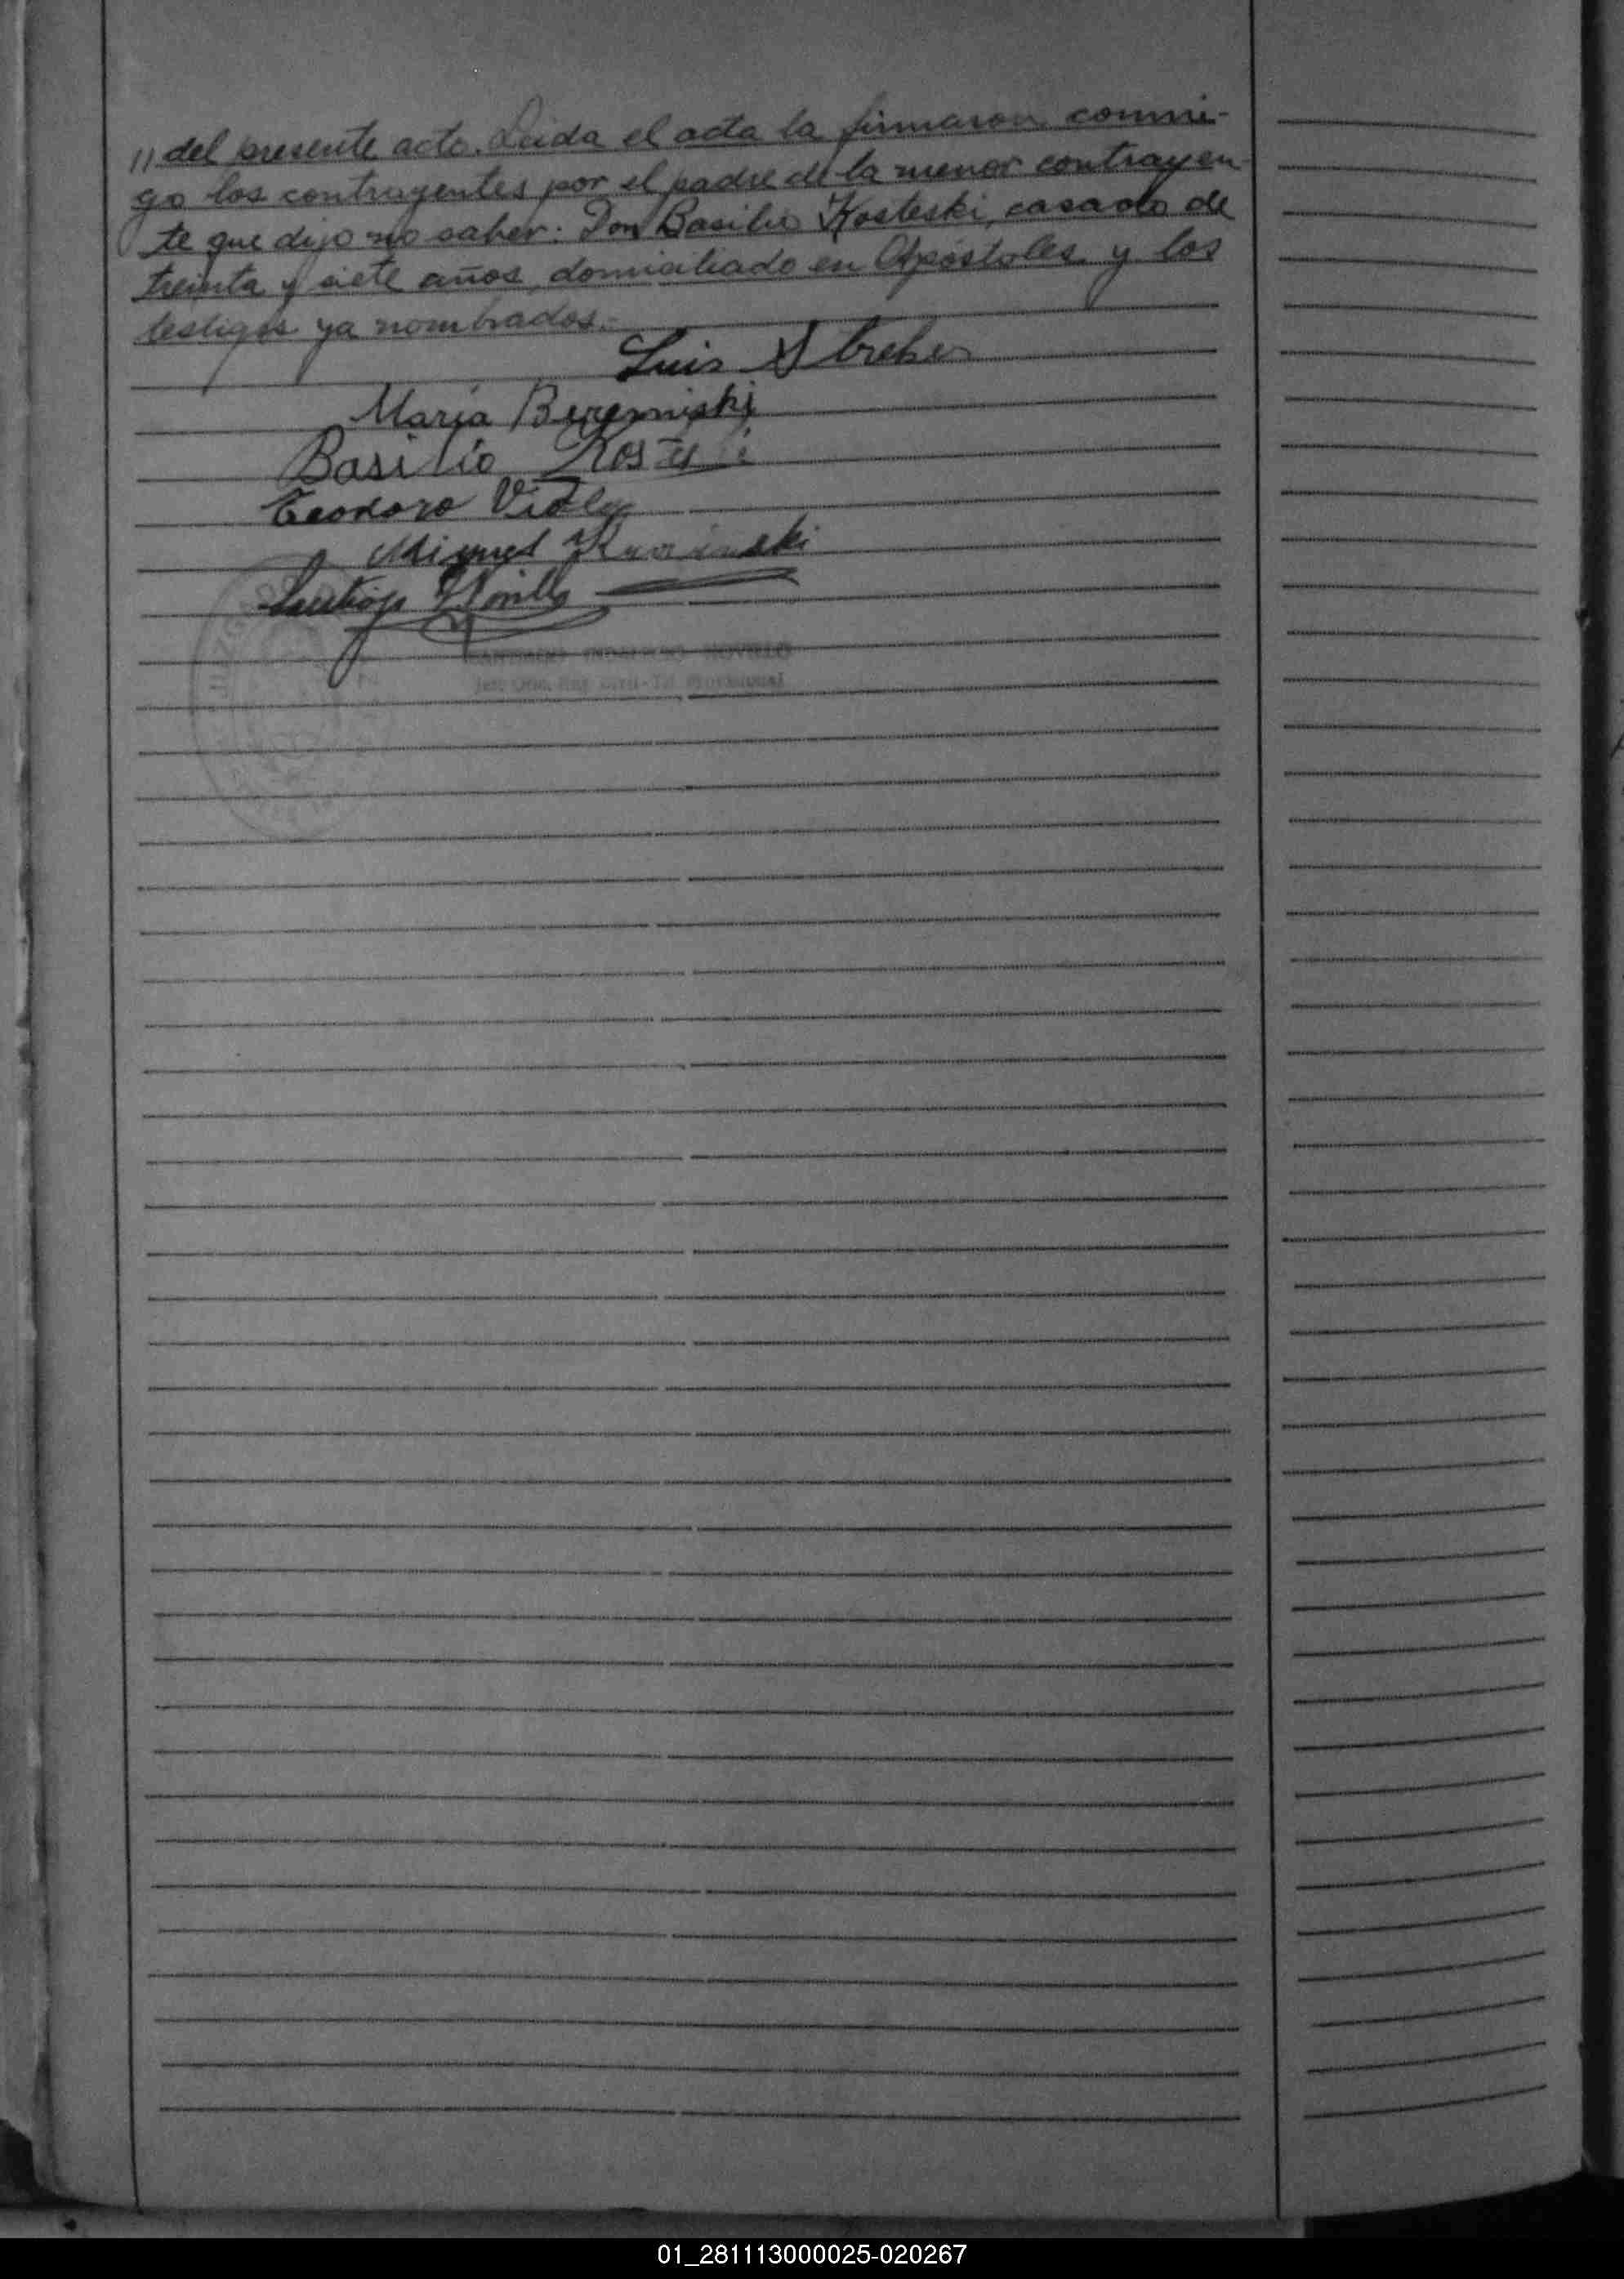 // del presente acto. Leida el acta la firmaron conmi-
go los contrayentes por el padre de la menor contrayen-
te que dijo no saber: Don Basilio Kosteski, casado de
treinta y siete años, domiciliado en Apóstoles y los
testigos ya nombrados.-
Luis
María Beremiski
Basilio
Teodoro
Miguel
SANTIAGO INDALECIO NOVILLO
01_281113000025-020267